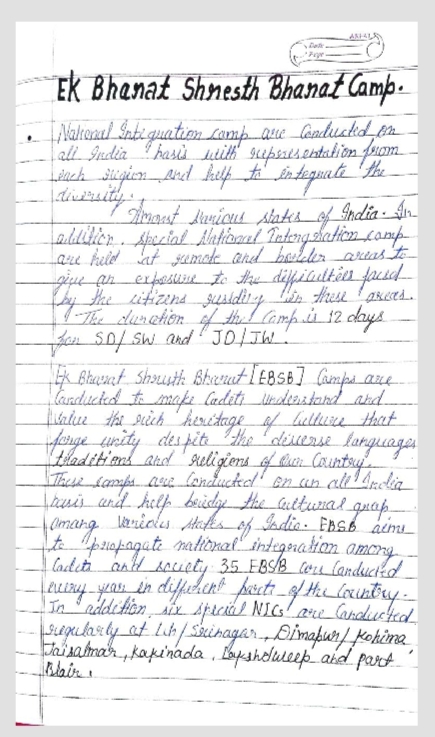 Date
Page
Ek Bharat Shresth Bharat Camp.
National Integration camp are Conducted on
all India basis with representation from
each region and help to integrate the
diversity.
Amongst Various states of India. In
addition, special National Intergration camp
are held at remote and border areas to
give an exposure to the difficulties faced
by the citizens residing in these areas.
The duration of the Camp is 12 days
for SD/SW and JD/JW.
Ek Bharat Shresth Bharat [EBSB] Camps are
Conducted to make Cadets Understand and
Value the rich heritage of Culture that
forge unity despite the diverse languages
traditions and religions of Our Country.
These camps are Conducted on an all India
basis and help bridge the Cultural gap
among Various states of India. EBSB aims
to propagate national integration among
Cadets and society 35 EBSB are Conducted
every year in different parts of the Country.
In addition, six special NICs are Conducted
regularly at Leh/Srinagar, Dimapur/Kohima
Jaisalmar, Kakinada, Lakshdweep and part
Blair.